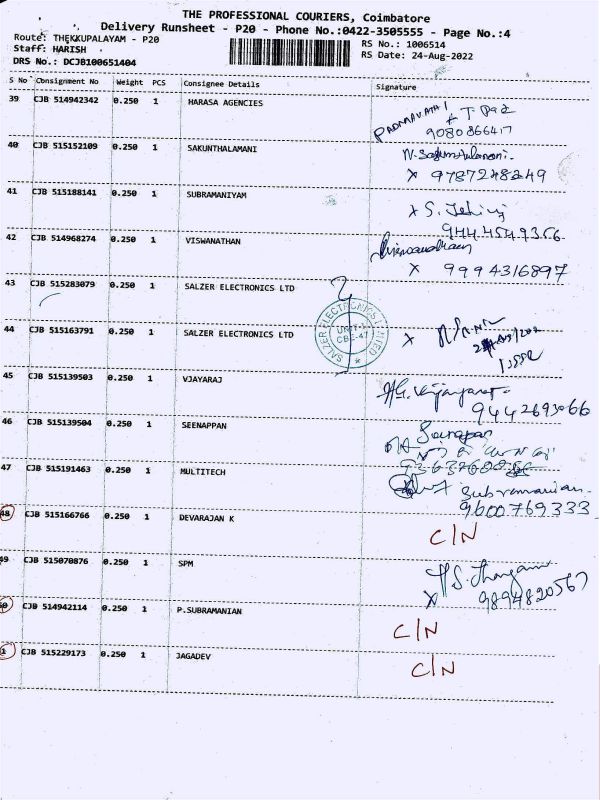 THE PROFESSIONAL COURIERS, Coimbatore
Delivery Runsheet - P20 - Phone No.:0422-3505555 - Page No.:4
Route: THEKKUPALAYAM - P20
RS No.: 1006514
Staff: HARISH
RS Date: 24-Aug-2022
DRS No.: DCJB100651404
S No Consignment No Weight PCS Consignee Details Signature
39 CJB 514942342 0.250 1 HARASA AGENCIES
PADMAVATHI
9080866417
40 CJB 515152109 0.250 1 SAKUNTHALAMANI
X 9787248249
41 CJB 515188141 0.250 1 SUBRAMANIYAM
X S.
9444549356
42 CJB 514968274 0.250 1 VISWANATHAN
X 9994316897
43 CJB 515283079 0.250 1 SALZER ELECTRONICS LTD
SALZER ELECTRONICS LIMITED
CBE-47
44 CJB 515163791 0.250 1 SALZER ELECTRONICS LTD
X
45 CJB 515139503 0.250 1 VJAYARAJ
9442693066
46 CJB 515139504 0.250 1 SEENAPPAN
47 CJB 515191463 0.250 1 MULTITECH
Subramanian
9600769333
48 CJB 515166766 0.250 1 DEVARAJAN K
C/N
49 CJB 515070876 0.250 1 SPM
X 9894820567
50 CJB 514942114 0.250 1 P.SUBRAMANIAN
C/N
1 CJB 515229173 0.250 1 JAGADEV
C/N